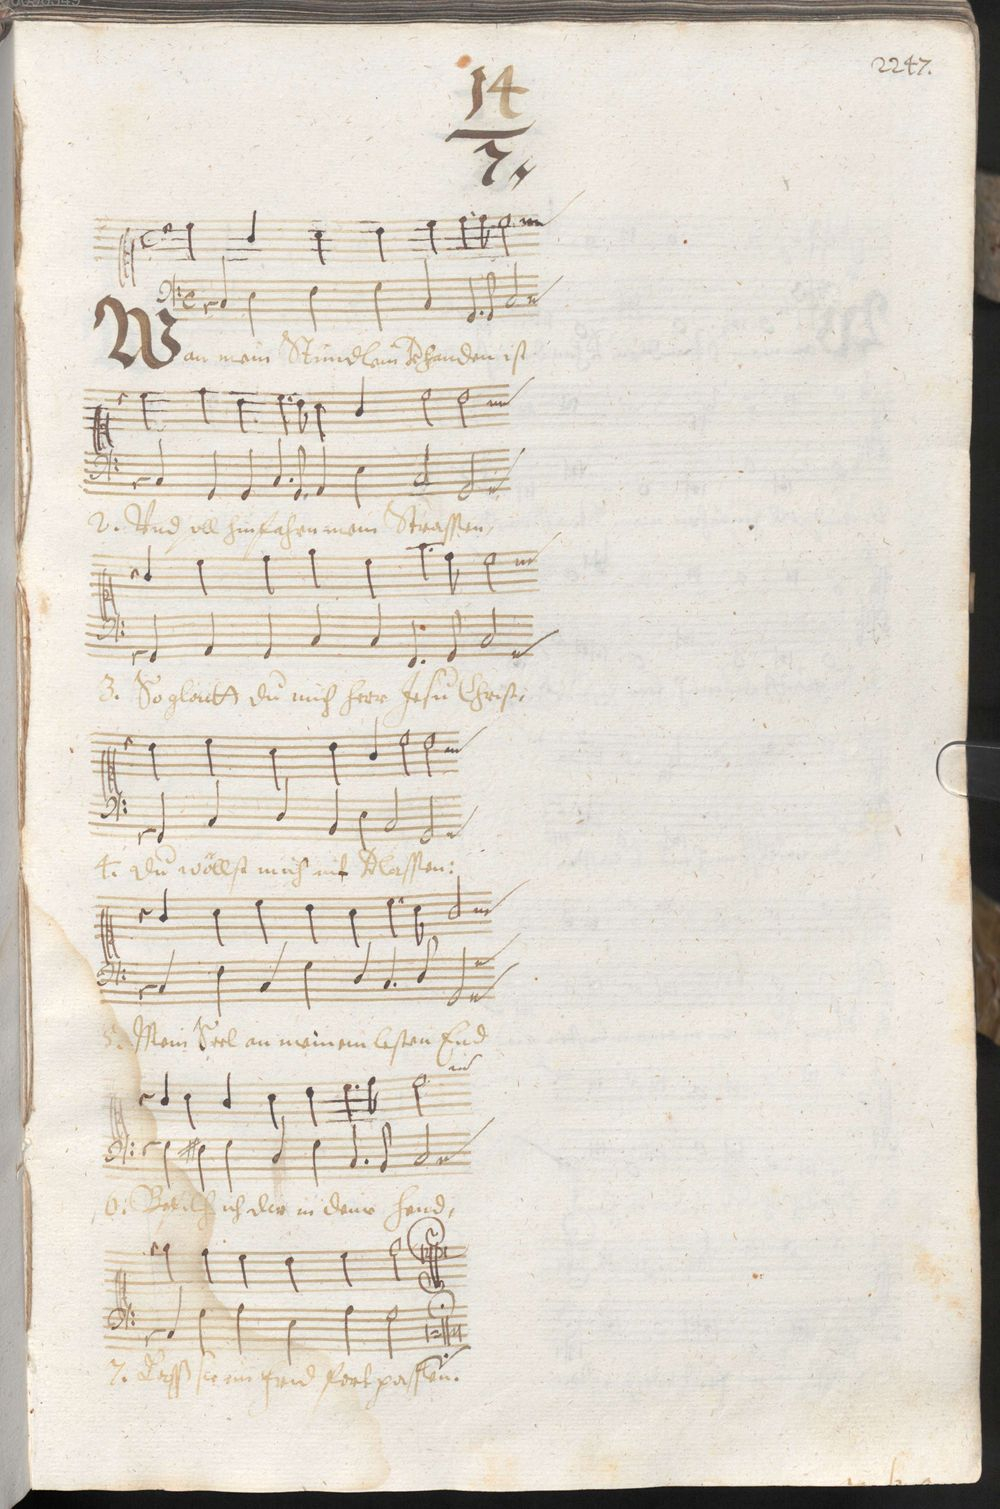 2247.
14
7.
Wan mein Stündlein Vhanden ist
2. Und soll hinfahrn mein Strassen,
3. So gleitt du mich Herr Jesu Christ,
4. Du wöllst mich nit Vlassen:
5. Mein Seel an meinem lesten End
6. Befilch ich dir in deine Hend,
7.